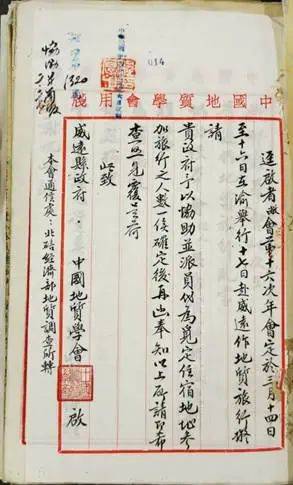 中國地質學會用牋
逕啟者敝會第十六次年會定於三月十四日
至十六日在渝舉行十七日赴威遠作地質旅行擬
請
貴政府予以協助並派員代為覓定住宿地地参
加旅行之人數一俟確定後再函奉知以上所請即希
查照見覆是荷
此致
威遠縣政府
中國地質學會 啟
本會通信處：北碚經濟部地質調查所轉
1320
014